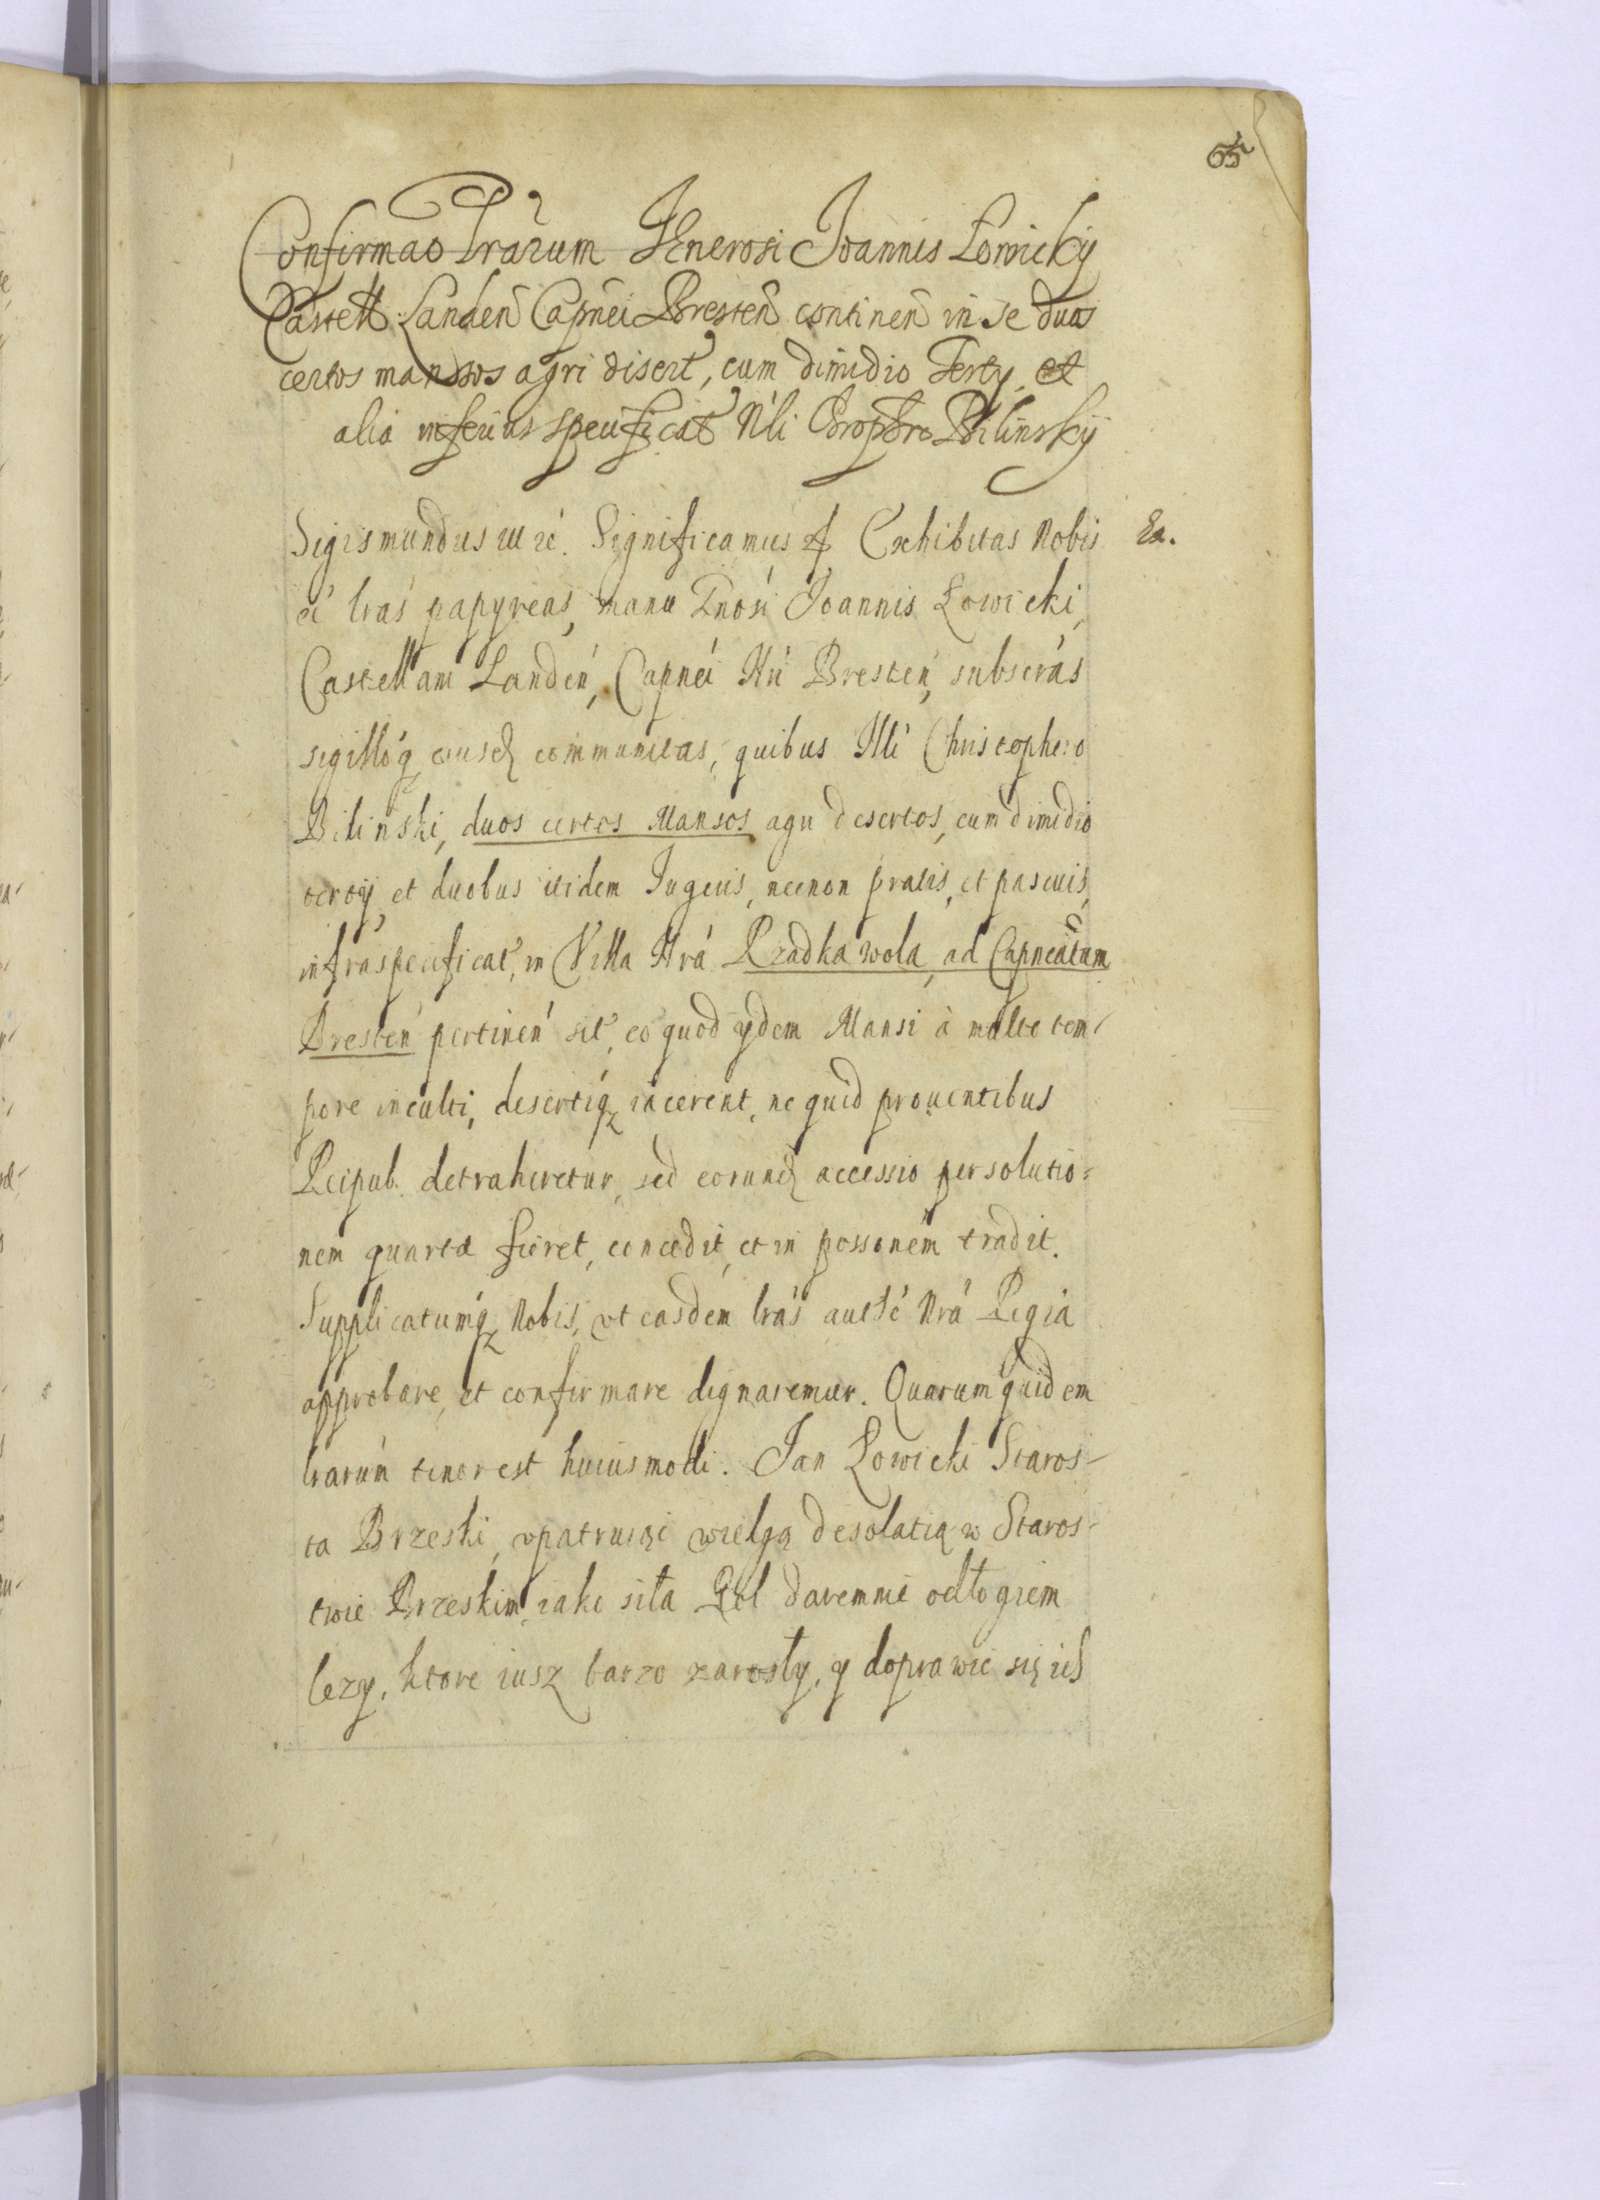 65
Confirmao Lrarum Generosi Joannis Lowickij
Castell. Landeñ Capñei Bresteñ contineñ in se duos
certos mansos agri disert, cum dimidio Terty, et
alia inferius specificat Nli Chrophro Bilinskij
Sigismundus III rc. Significamus Exhibitas Nobis Ex.
ee lras papyreas, manu Gnosi Joannis Łowicki,
Castellani Landeń, Capnei Nri Bresteń, subscras
sigilloq eiusd communitas, quibus Nli Christophero
Bilinski, duos certos Mansos agri desertos, cum dimidio
tertij et duobus itidem Jugeris, necnon pratis, et pascuis,
infraspecificat, in Villa Nra Rzadka wola, ad Capneatum
Bresteń pertineń sit, eo quod ydem Mansi à multo tem-
pore inculti, desertiq iacerent, ne quid prouentibus
Reipub. detraheretur, sed eorund accessio persolutio-
nem quartæ fieret, concedit, et in possonem tradit.
Supplicatumq Nobis, vt easdem lras autte Nra Regia
approbare, et confirmare dignaremur. Quarum quidem
lrarum tenor est huiusmodi. Jan Łowicki Staros-
ta Brzeski, vpatruiąc wielgą desolatią w Staros-
twie Brzeskim, iako siła Rol daremnie odłogiem
lezy, ktore iusz barzo zarosły, y doprawic się ich